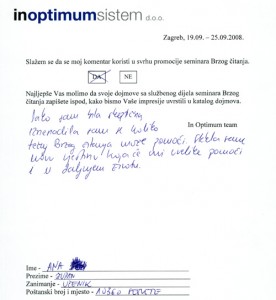 inoptimumsistem d.o.o.
Zagreb, 19.09. – 25.09.2008.
Slažem se da se moj komentar koristi u svrhu promocije seminara Brzog čitanja.
DA NE
Najljepše Vas molimo da svoje dojmove sa službenog dijela seminara Brzog
čitanja zapišete ispod, kako bismo Vaše impresije uvrstili u katalog dojmova.
In Optimum team
Iako sam bila skeptična
iznenadila sam se koliko
tečaj Brzog čitanja može pomoći. Stekla sam
novu vještinu koja će mi uvelike pomoći
i u daljnjem životu.
Ime - ANA
Prezime -
Zanimanje - UČENIK
Poštanski broj i mjesto -